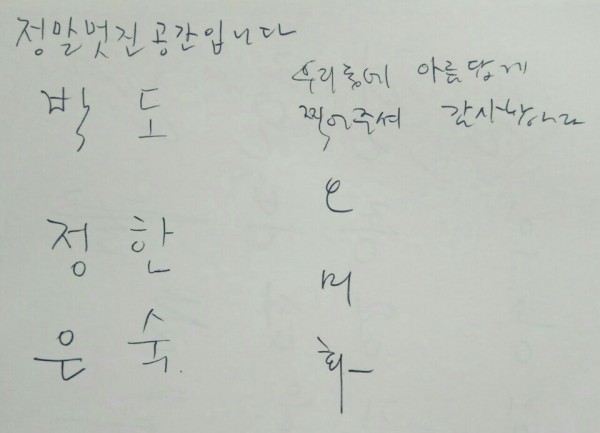 정말멋진공간입니다
박 도
정 한
은 숙.
우리 아름답게
찍어주셔 감사합니다
미
화